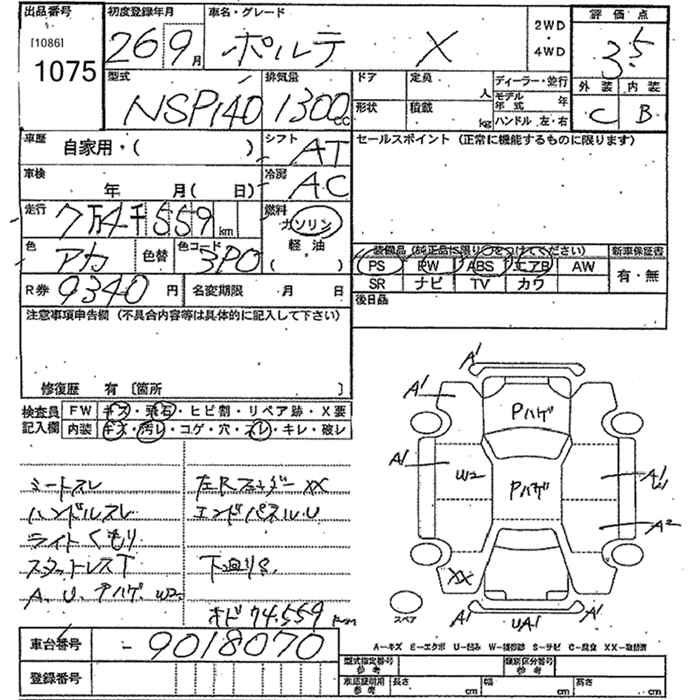 出品番号 初度登録年月 車名・グレード 2WD ・ 4WD 評価点
[1086] 1075 26 9月 ポルテ X 3.5
型式 排気量 ドア 定員 人 ディーラー・並行 外装 内装
NSP140 1300cc 形状 積載 kg モデル年式 年 ハンドル 左・右 C B
車歴 自家用・( ) シフト AT セールスポイント (正常に機能するものに限ります)
車検 年 月 ( 日) 冷房 AC
走行 7万4千559km 燃料 ガソリン
色 アカ 色替 色コード 3P0 軽油 ( ) 装備品 (純正品に限り○をつけてください) 新車保証書
PS PW ABS エアB AW 有・無
R券 9340円 名変期限 月 日 SR ナビ TV カワ
注意事項申告欄 (不具合内容等は具体的に記入して下さい) 後日品
修復歴 有 [箇所 ]
検査員 FW キズ・飛石・ヒビ割・リペア跡・X要
記入欄 内装 キズ・汚レ・コゲ・穴・スレ・キレ・破レ
シートスレ 左Rフェンダー XX
ハンドルスレ エンドパネル U
ライトくもり
スタットレスT 下廻りS
A、U、Pハゲ、W2
オド 74,559km
A1 A1 Pハゲ
A1 W2 Pハゲ A1
A2
XX
スペア A1 UA1 A1
車台番号 -9018070 A−キズ E−エクボ U−凹み W−補修跡 S−サビ C−腐食 XX−取替済
登録番号 型式指定番号 参考 類別区分番号 参考
車庫証明用 参考 長さ cm 幅 cm 高さ cm